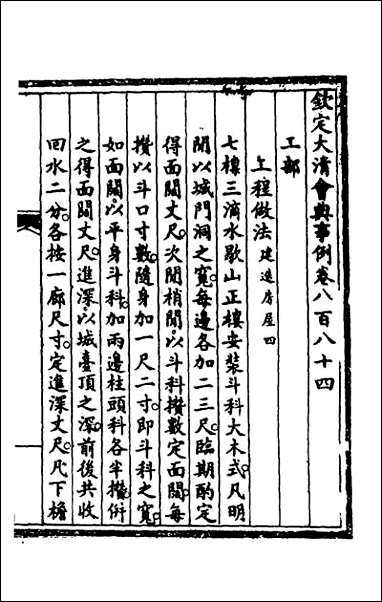 欽定大清會典事例卷八百八十四
工部
工程做法建造房屋四
七檩三滴水歇山正樓安裝斗科大木式凡明
間以城門洞之寬每邊各加二三尺臨期酌定
得面闊丈尺次間梢間以斗科攢數定面闊每
攢以斗口寸數隨身加一尺二寸即斗科之寬
如面闊以平身斗科加兩邊柱頭科各半攢倂
之得面闊丈尺進深以城臺頂之深前後共收
回水二分各按一廊尺寸定進深丈尺凡下檐